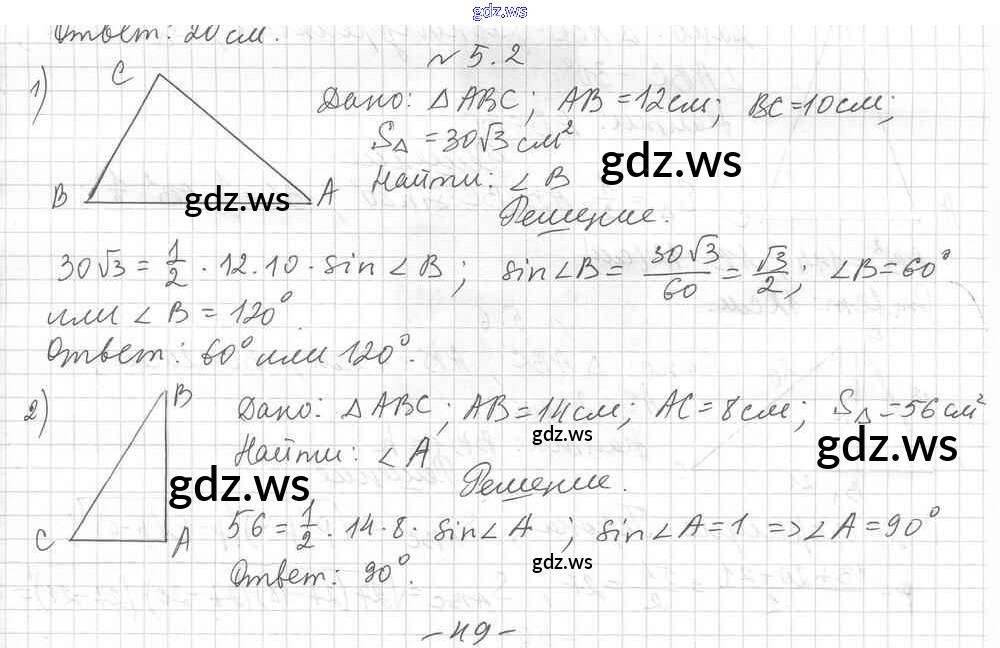 gdz.ws
Ответ: 20 см.
№ 5.2
1) C B A
Дано: △ABC; AB = 12 см; BC = 10 см;
S△ = 30√3 см²
gdz.ws
Найти: ∠B
gdz.ws
Решение.
30√3 = 1/2 · 12 · 10 · sin∠B; sin∠B = 30√3/60 = √3/2; ∠B = 60°
или ∠B = 120°.
Ответ: 60° или 120°.
2) B C A
Дано: △ABC; AB = 14 см; AC = 8 см; S△ = 56 см²
gdz.ws
gdz.ws
Найти: ∠A
gdz.ws
Решение.
56 = 1/2 · 14 · 8 · sin∠A; sin∠A = 1 => ∠A = 90°
gdz.ws
Ответ: 90°.
- 49 -